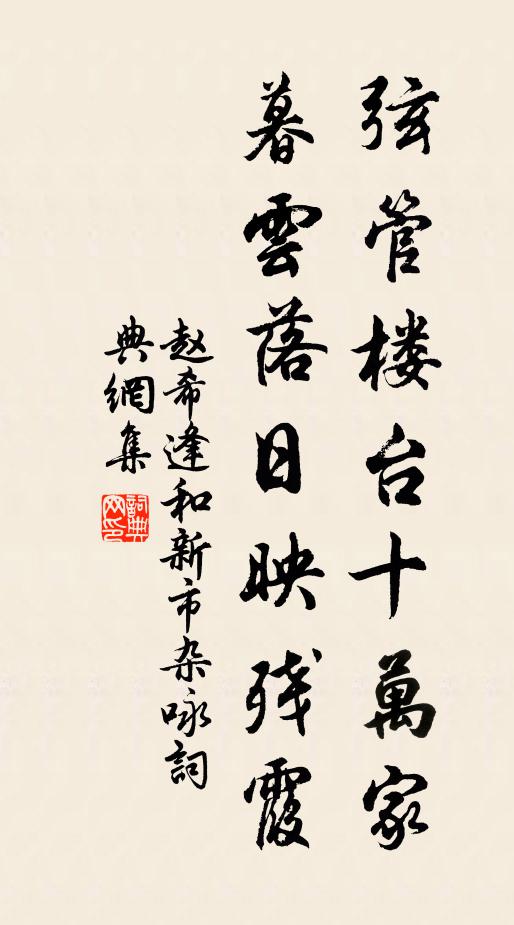 弦管楼台十萬家
暮雲落日映残霞
赵希逢和新市杂咏詞
典網集
詞典网印